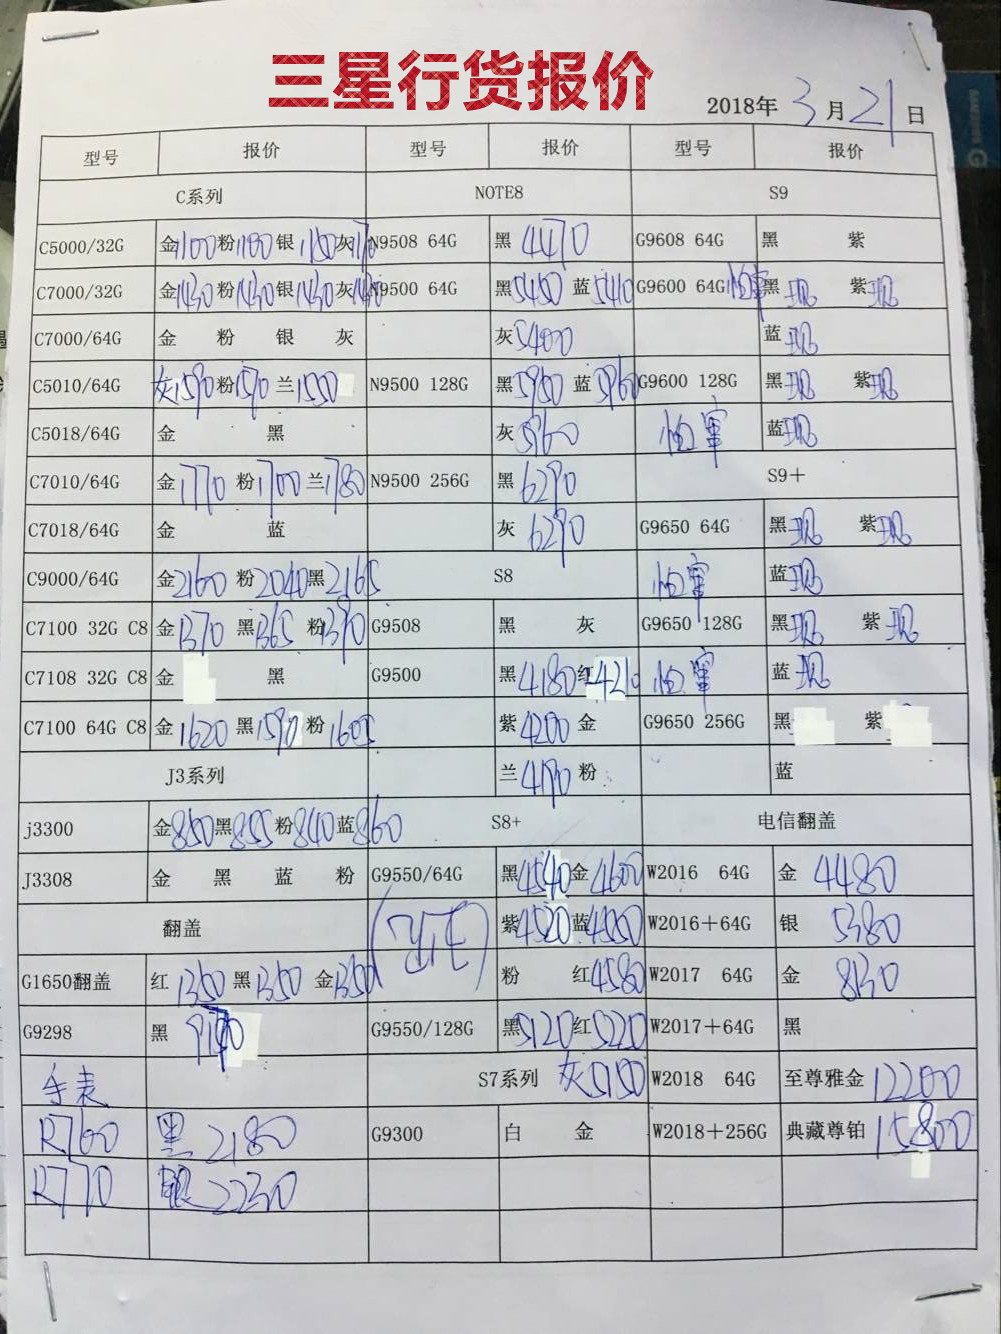 三星行货报价
2018年 3月21日
型号 报价 型号 报价 型号 报价
C系列 NOTE8 S9
C5000/32G 金1100 粉1100 银1150 灰 N9508 64G 黑 4470 G9608 64G 黑 紫
C7000/32G 金1430 粉1430 银1430 灰 N9500 64G 黑5450 蓝5410 G9600 64G 黑现 紫现
C7000/64G 金 粉 银 灰 灰5400 蓝现
C5010/64G 灰1590 粉1570 兰1550 N9500 128G 黑5950 蓝5960 G9600 128G 黑现 紫现
C5018/64G 金 黑 灰5960 蓝现
C7010/64G 金1770 粉1700 兰1780 N9500 256G 黑6290 S9+
C7018/64G 金 蓝 灰6290 G9650 64G 黑现 紫现
C9000/64G 金2160 粉2040 黑2165 S8 蓝现
C7100 32G C8 金1370 黑1365 粉1390 G9508 黑 灰 G9650 128G 黑现 紫现
C7108 32G C8 金 黑 G9500 黑4180 红4210 蓝现
C7100 64G C8 金1620 黑1590 粉1605 紫4200 金 G9650 256G 黑 紫
J3系列 兰4190 粉 蓝
j3300 金850 黑855 粉840 蓝860 S8+ 电信翻盖
J3308 金 黑 蓝 粉 G9550/64G 黑4540 金4600 W2016 64G 金 4480
翻盖 紫4520 蓝4550 W2016+64G 银 5380
G1650翻盖 红1350 黑1350 金1350 粉 红4580 W2017 64G 金 8130
G9298 黑 9190 G9550/128G 黑5120 红5220 W2017+64G 黑
手表 S7系列 灰5150 W2018 64G 至尊雅金12200
R760 黑2180 G9300 白 金 W2018+256G 典藏尊铂15800
R770 银2230